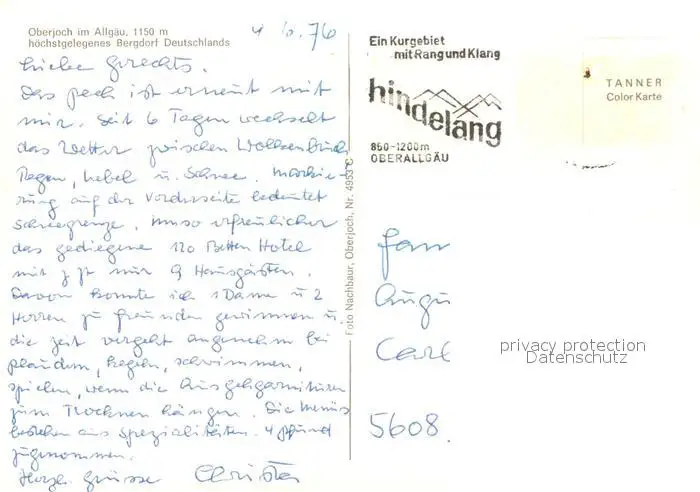 Oberjoch im Allgäu, 1150 m
höchstgelegenes Bergdorf Deutschlands
4 10.76
Das Pech ist erneut mit
mir. Seit 6 Tagen wechselt
das Wetter zwischen Wolkenbruch
Regen, Nebel u. Schnee. Markie-
rung auf der Vorderseite bedeutet
Schneegrenze. Umso erfreulicher
das gediegene 120 Betten Hotel
mit z Zt nur 9 Hausgästen.
Davon konnte ich 1 Dame u 2
Herren zu Freunden gewinnen u.
die Zeit vergeht angenehm bei
plaudern, kegeln, schwimmen,
spielen, wenn die Ausgehgarnituren
zum Trocknen hängen. Die Menüs
bestehen aus Spezialitäten. 4 Pfund
zugenommen.
Herzl. Grüsse Christa
Foto Nachbaur, Oberjoch, Nr. 4953 C
Ein Kurgebiet
mit Rang und Klang
hindelang
850-1200m
OBERALLGÄU
TANNER
Color Karte
Fam
Augu
Carl
5608
privacy protection
Datenschutz